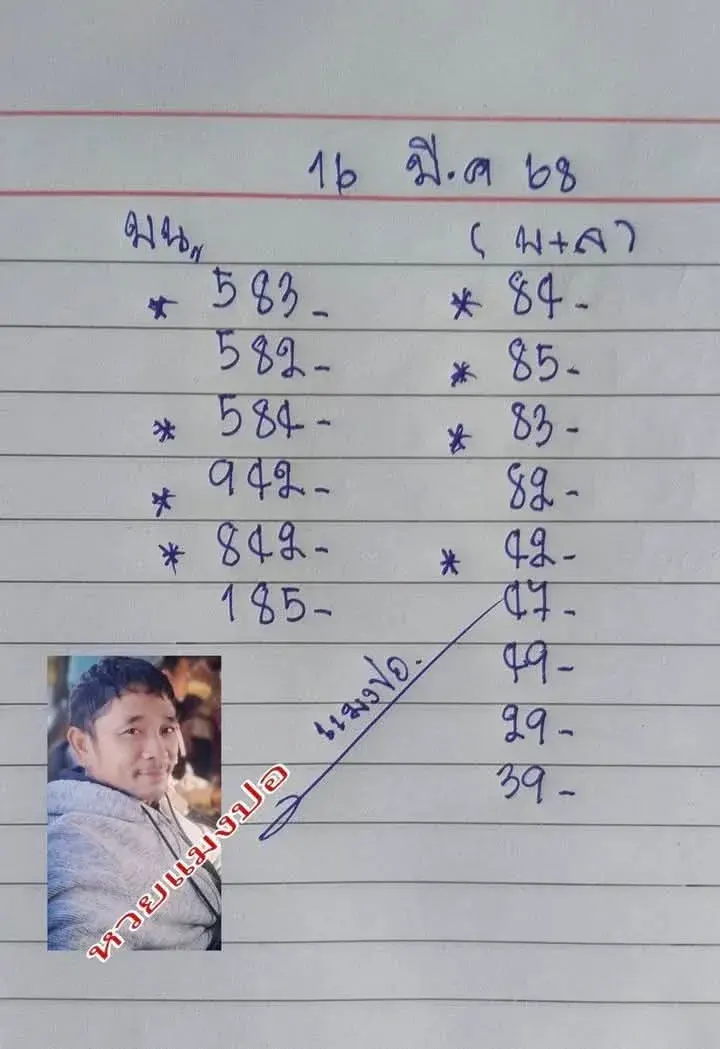 16 มี.ค 68
บน,, ( บ+ล )
* 583 - * 84 -
582 - * 85 -
* 584 - * 83 -
* 942 - 82 -
* 842 - * 42 -
185 - 47 -
49 -
แมงปอ.
29 -
39 -
หวยแมงปอ